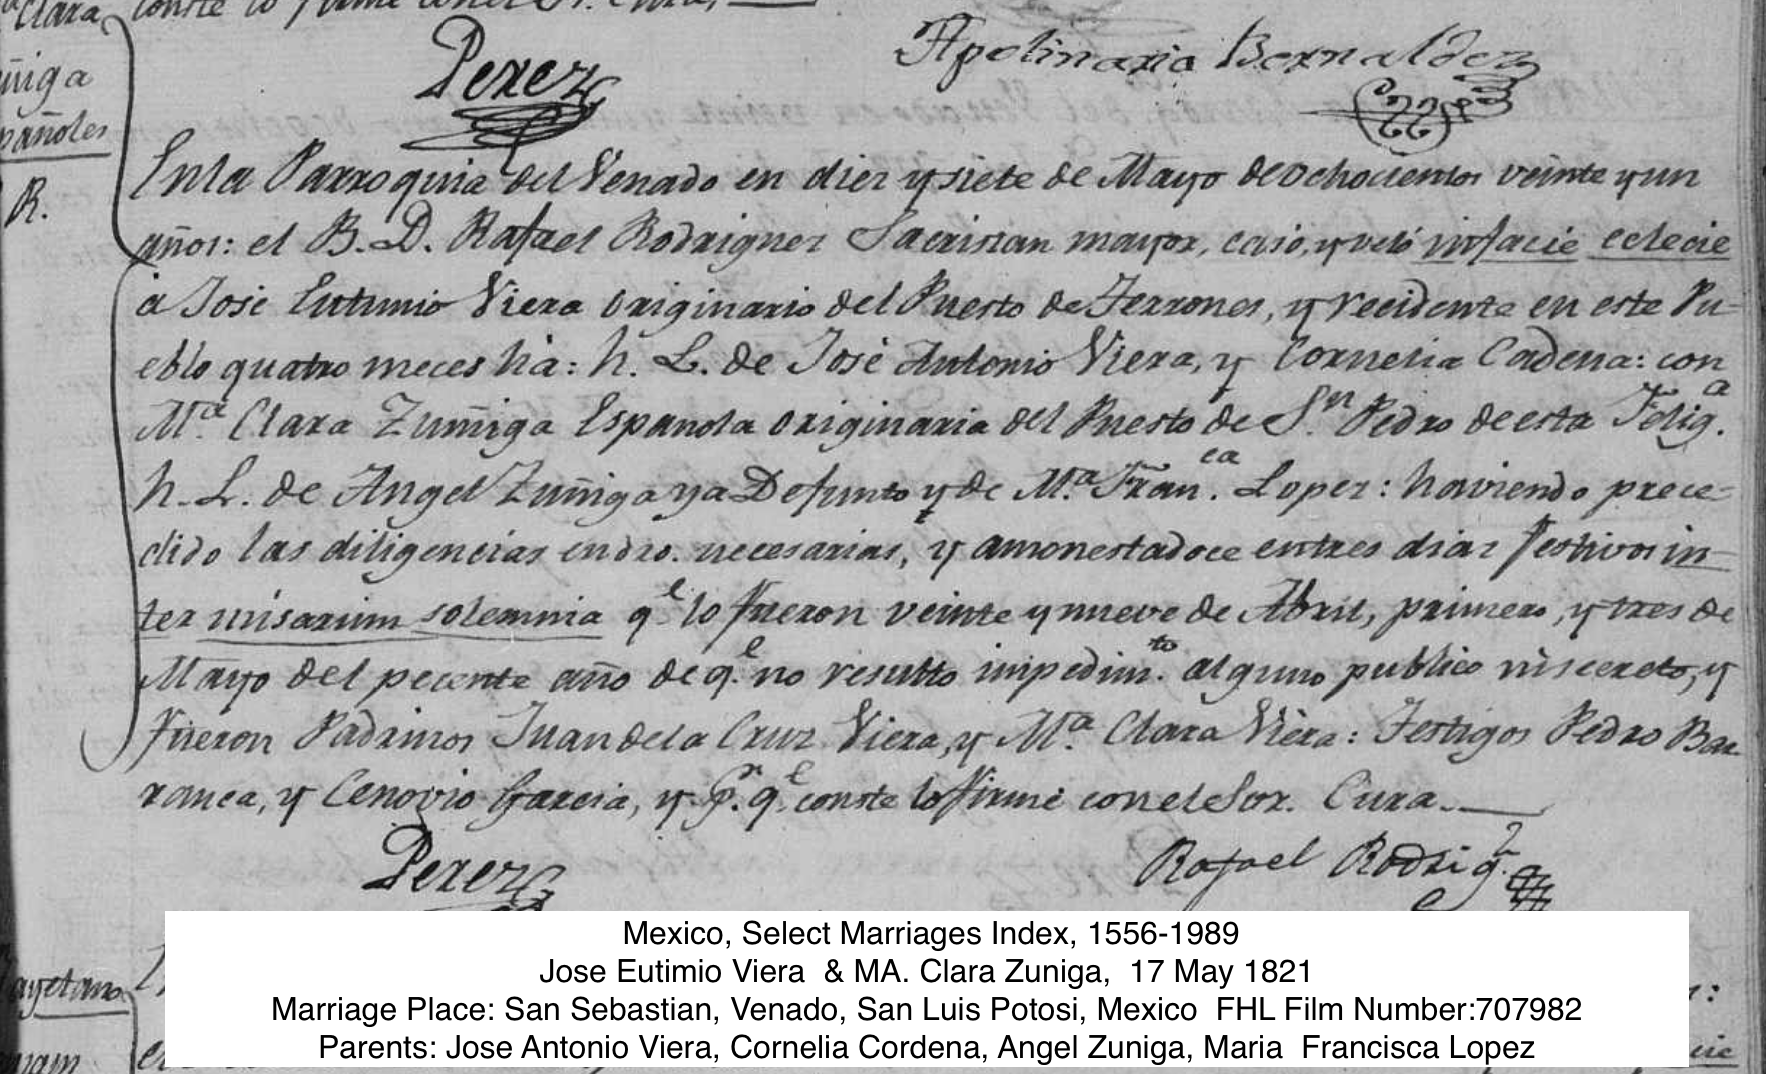 Clara, conste lo firmé con el Sr. Cura,
Perez
Apolinario Bernaldez
uñiga
pañoles
R.
En la Parroquia del Venado en diez y siete de Mayo de ochocientos veinte y un
años: el B. D. Rafael Rodriguez Sacristan mayor, casó, y veló infacie eclecie
a José Eutimio Viera originario del Puesto de Terrones, y recidente en este Pu-
eblo quatro meces ha: h. L. de José Antonio Viera, y Cornelia Cadena: con
Mª. Clara Zuñiga Española originaria del Puesto de Sn. Pedro de esta Feligª.
h. L. de Angel Zuñiga ya Defunto y de Mª. Franca. Lopez: haviendo prece-
dido las diligencias en dro. necesarias, y amonestadoce en tres dias festivos in-
ter misarum solemnia qe. lo fueron veinte y nueve de Abril, primero, y tres de
Mayo del pecente año de qe. no resultó impedimto. alguno publico ni secreto, y
fueron Padrinos Juan de la Cruz Viera, y Mª. Clara Viera: Testigos Pedro Bar
ranca, y Cenovio Garcia, y pr. qe. conste lo firmé con el Sor. Cura.
Perez
Rafael Rodrigz.
ayetano
Mexico, Select Marriages Index, 1556-1989
Jose Eutimio Viera & MA. Clara Zuniga, 17 May 1821
Marriage Place: San Sebastian, Venado, San Luis Potosi, Mexico FHL Film Number:707982
Parents: Jose Antonio Viera, Cornelia Cordena, Angel Zuniga, Maria Francisca Lopez